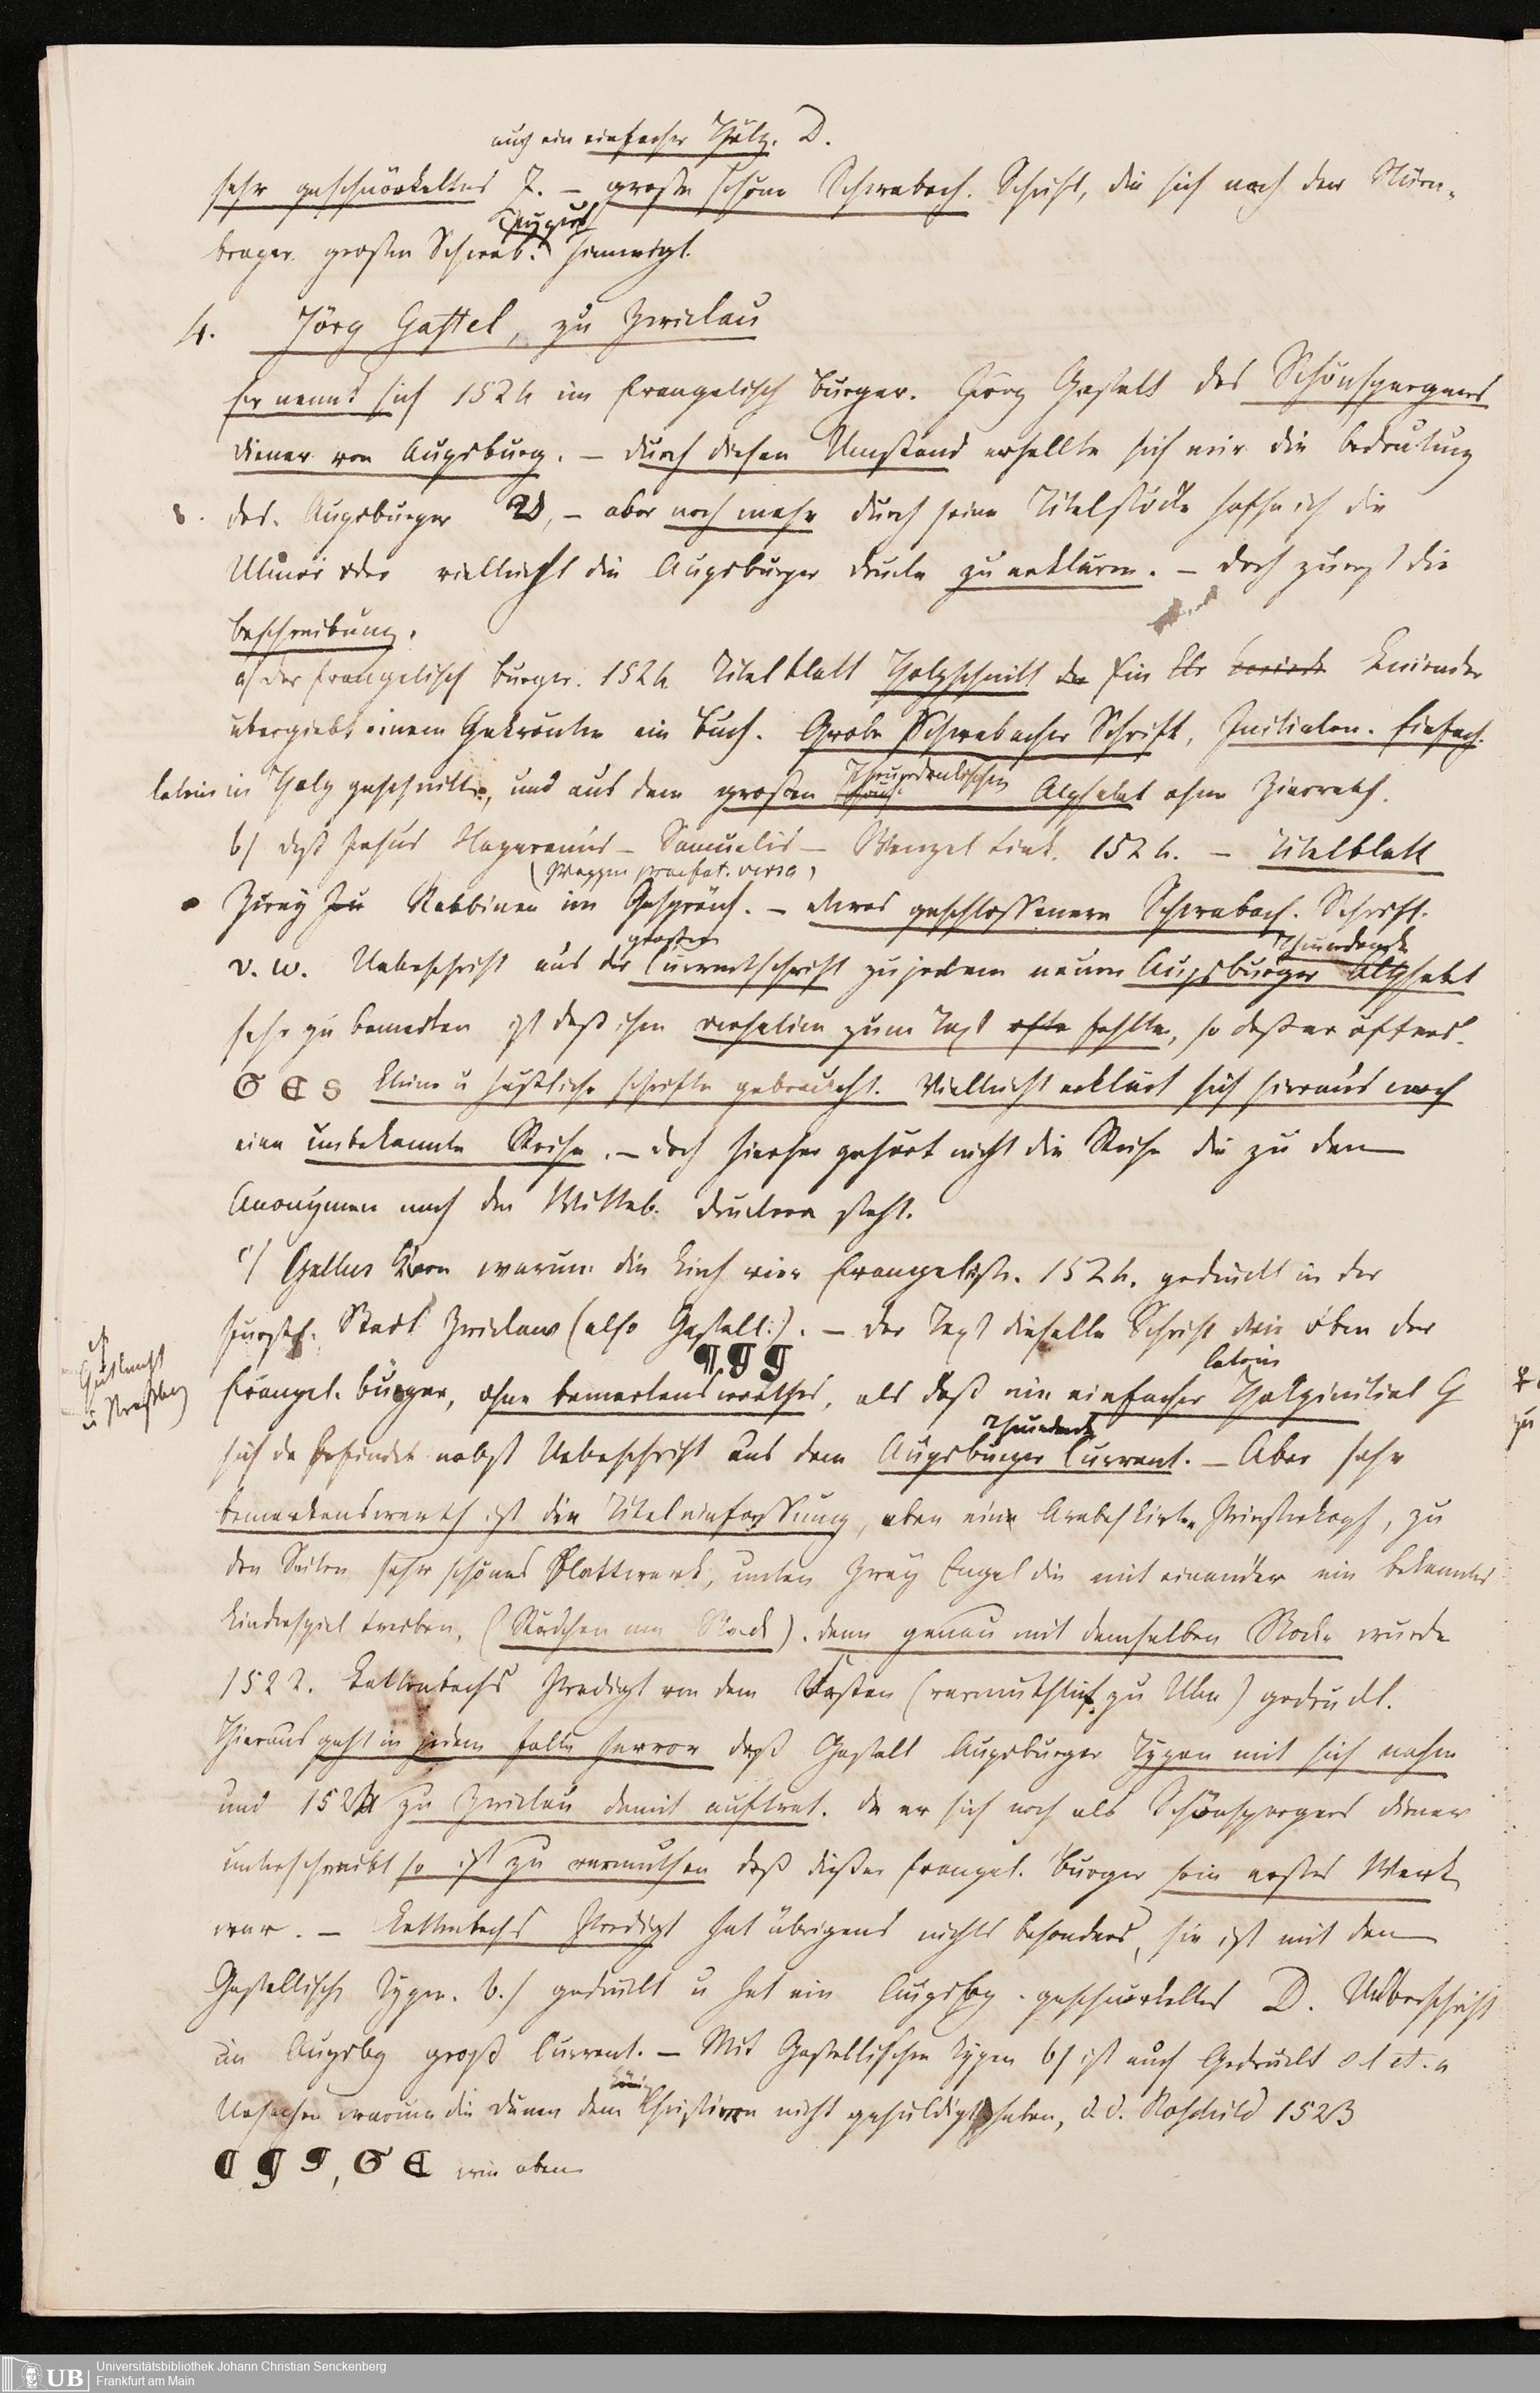 auch ein einfacher Holz. D.
sehr geschnörkeltes J. – große schöne Schwabach. Schrift, die sich nach der Nürn-
berger großen Schwab. hinneigt.
4. Jörg Gastel, zu Zwickau
Er nennt sich 1524 im Evangelisch Burger. Georg Gastell des Schönspergers
diener von Augsburg. – durch diesen Umstand erhellte sich mir die bedeutung
des Augsburger D, – aber noch mehr durch seine Titelstöcke hoffe ich die
Ulmer oder vielleicht die Augsburger drucke zu erklären. – doch zuerst die
beschreibung.
a/ der Evangelisch burger. 1524. Titelblatt Holzschnitt Ein Knieender
übergiebt einem Gekrönten ein Buch. Grobe Schwabacher Schrift, Initialen. Einfach.
latein in Holz geschnitten, und aus dem großen Theuerdankischen Alphabet ohne Zierrath.
b/ daß Jesus Nazarenus – Samuelis – Wenzel Link. 1524. – Titelblatt
Zwey Rabbinen im Gespräch. – etwas geschlossenere Schwabach. Schrift.
v. w. Ueberschrift aus der großen Currentschrift zu jedem neuen Augsburger Alphabet
sehr zu bemerken ist daß ihm versalien zum Text fehlten, so daß er öfters
G E S kleine u häßliche schriften gebraucht. Vielleicht erklärt sich hieraus noch
eine unbekannte Reihe. – doch hierher gehört nicht die Reihe die zu den
Anonymen nach den Wittenb. druckern steht.
c/ Gallus Korn warum die Kirch vier Evangelisten. 1524. gedruckt in der
fürstl. Stadt Zwickaw (also Gastell.). – der Text dieselbe Schrift wie oben der
Evangel. burger, ohne bemerkenswerthes, als daß ein einfacher latein Holzinitial G
sich da befindet nebst Ueberschrift aus dem Augsburger Current. – Aber sehr
bemerkenswerth ist die Titeleinfassung, oben ein Arabeskirter Priesterkopf, zu
den Seiten sehr schönes Blattwerk, unten Zwey Engel die mit einander ein bekanntes
Kinderspiel treiben, . denn genau mit demselben Stocke wurde
1522. Kettenbachs Predigt von dem Fasten (vermuthlich zu Ulm) gedruckt.
Hieraus geht in jedem Falle hervor daß Gastell Augsburger Typen mit sich nahm
und 1524 zu Zwickau damit auftrat. da er sich noch als Schönspergers diener
unterschreibt so ist zu vermuthen daß dieser Evangel. Burger sein erstes Werk
war. – Kettenbachs Predigt hat übrigens nichts besonders, sie ist mit den
Gastellische Typen. b./ gedruckt u hat ein Augsbg. geschnörkeltes D. Ueberschrift
in Augsbg groß Current. – Mit Gastellischen Typen b/ ist auch Gedruckt s l et. a
Ursachen warum die Dänen dem König Christiern nicht gehuldigt haben, d. d. Roschild 1523
G E wie oben
Universitätsbibliothek Johann Christian Senckenberg
Frankfurt am Main
UB